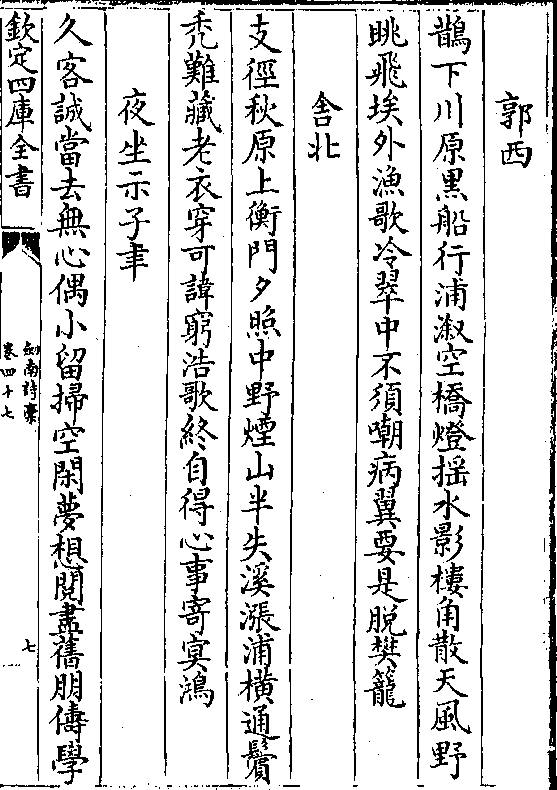 郭西
鵲下川原黒船行浦溆空橋燈揺水影樓角散天風野
眺飛埃外漁歌冷翠中不須嘲病翼要是脫樊籠
舎北
支徑秋原上衡門夕照中野煙山半失溪漲浦橫通鬢
禿難藏老衣穿可諱窮浩歌終自得心事寄冥鴻
夜坐示子聿
久客誠當去無心偶小留掃空閑夢想閱盡舊朋儔學
欽定四庫全書
劍南詩槀
卷四十七
七